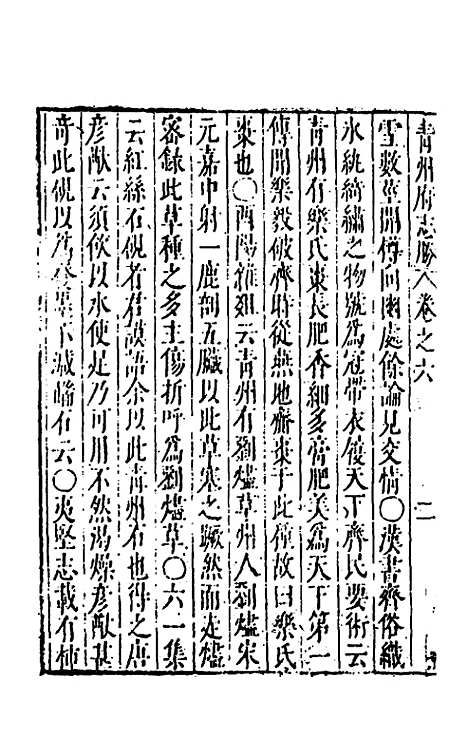 青州府志勝 卷之六 二
雪數草開樽向幽處餘論見交情〇漢書齊俗織
氷紈綺繡之物號爲冠帶衣履天下齊民要術云
青州有樂氏棗長肥香細多膏肥美爲天下第一
傳聞樂毅破齊時從燕地齎棗于此種故曰樂氏
棗也〇酉陽雜俎云青州有劉㷭草州人劉㷭宋
元嘉中射一鹿剖五臟以此草塞之蹶然而走㷭
密錄此草種之多主傷折呼爲劉㷭草〇六一集
云紅絲石硯者君謨語余以此青州石也得之唐
彦猷云須飲以水使足乃可用不然渴燥彦猷甚
奇此硯以爲發墨不減端石云〇夷堅志載有柿